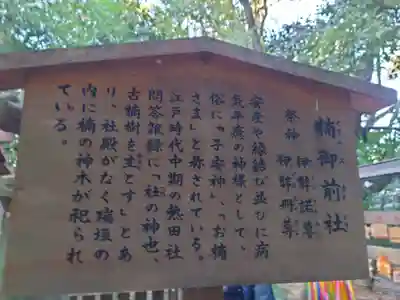 楠御前社
祭神 伊弉諾尊
伊弉冊尊
安産や縁結び並びに病
気平癒の神様として、
俗に「子安神」「お楠
さま」と尊されている。
江戸時代中期の熱田社
問答雑録に「社の神也、
古楠樹を主とす」とあ
り、社殿がなく瑞垣の
内に楠の神木が祀られ
ている。